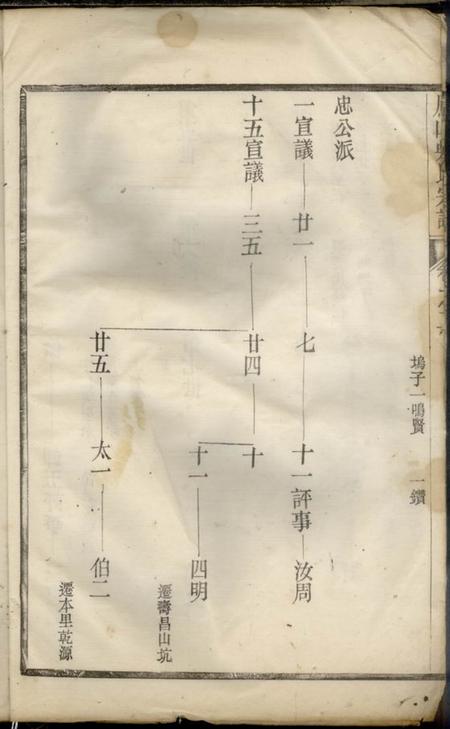 塢子一鳴賢 一鑽
忠公派
一宣議 廿一 七 十一評事 汝周
十五宣議 三五 廿四 十
十一 四明 遷壽昌山坑
廿五 太一 伯二 遷本里乾源